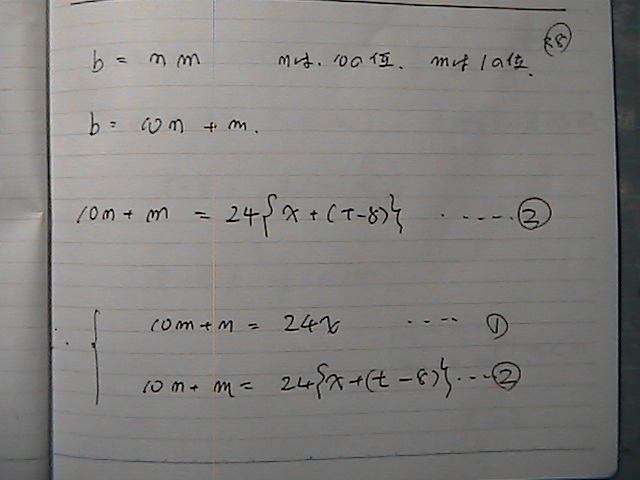 58
b = nm nは、10の位. mは1の位.
b = 10n + m.
10n + m = 24{x + (t-8)} ・・・・・・②
∴ { 10m + n = 24x ・・・・ ①
10n + m = 24{x + (t-8)} ・・・②